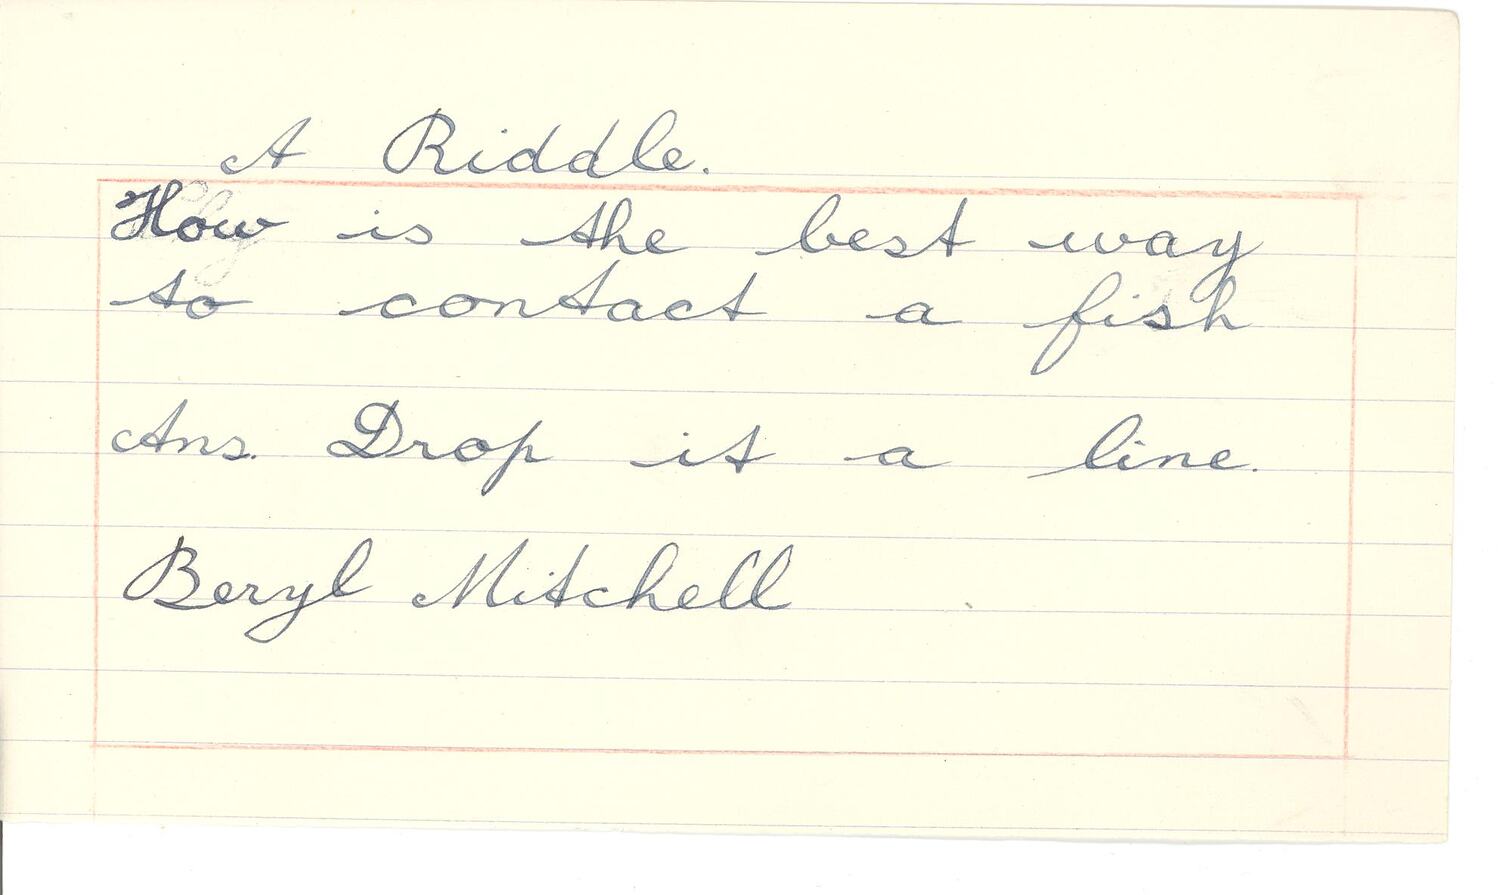 A Riddle.
How is the best way
to contact a fish
Ans. Drop it a line.
Beryl Mitchell